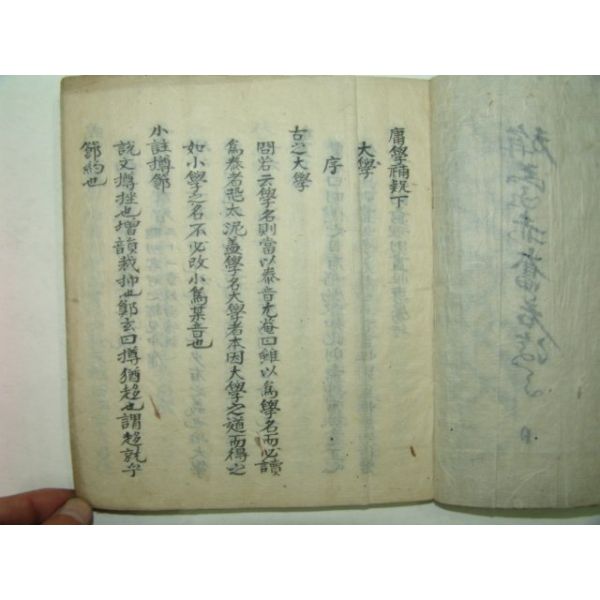 庸學補疑下
大學
序
古之大學
問若云學名則當以泰音尤菴曰雖以爲學名而必讀
爲泰者恐太泥盖學名大學者本因大學之道而得之
如小學之名不必改小爲某音也
小註撙節
說文撙挫也增韻裁抑也鄭玄曰撙猶趨也謂趨就乎
節約也